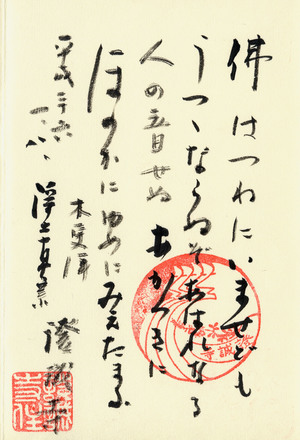 佛はつねにいませども
うつゝならぬぞあはれなる
人の音せぬあかつきに
ほのかにゆめにみえたまふ
平成二十六
木更津
浄土真宗
證誠寺